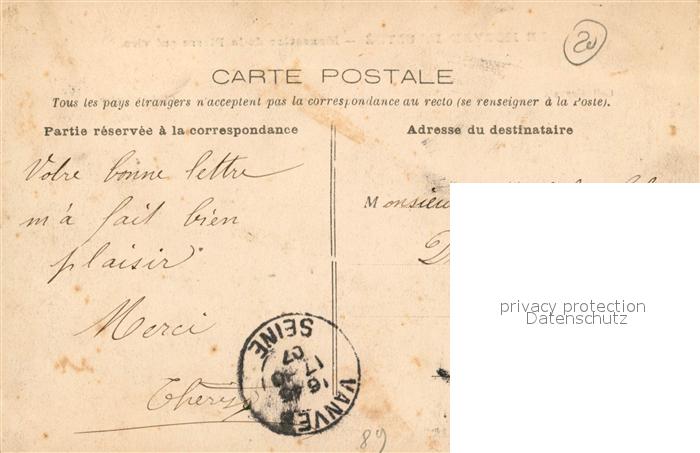 CARTE POSTALE
Tous les pays étrangers n'acceptent pas la correspondance au recto (se renseigner à la Poste).
Partie réservée à la correspondance
Adresse du destinataire
Votre bonne lettre
m'a fait bien
plaisir
Merci
Monsieur
privacy protection
Datenschutz
VANVES
SEINE
16
17
07
89